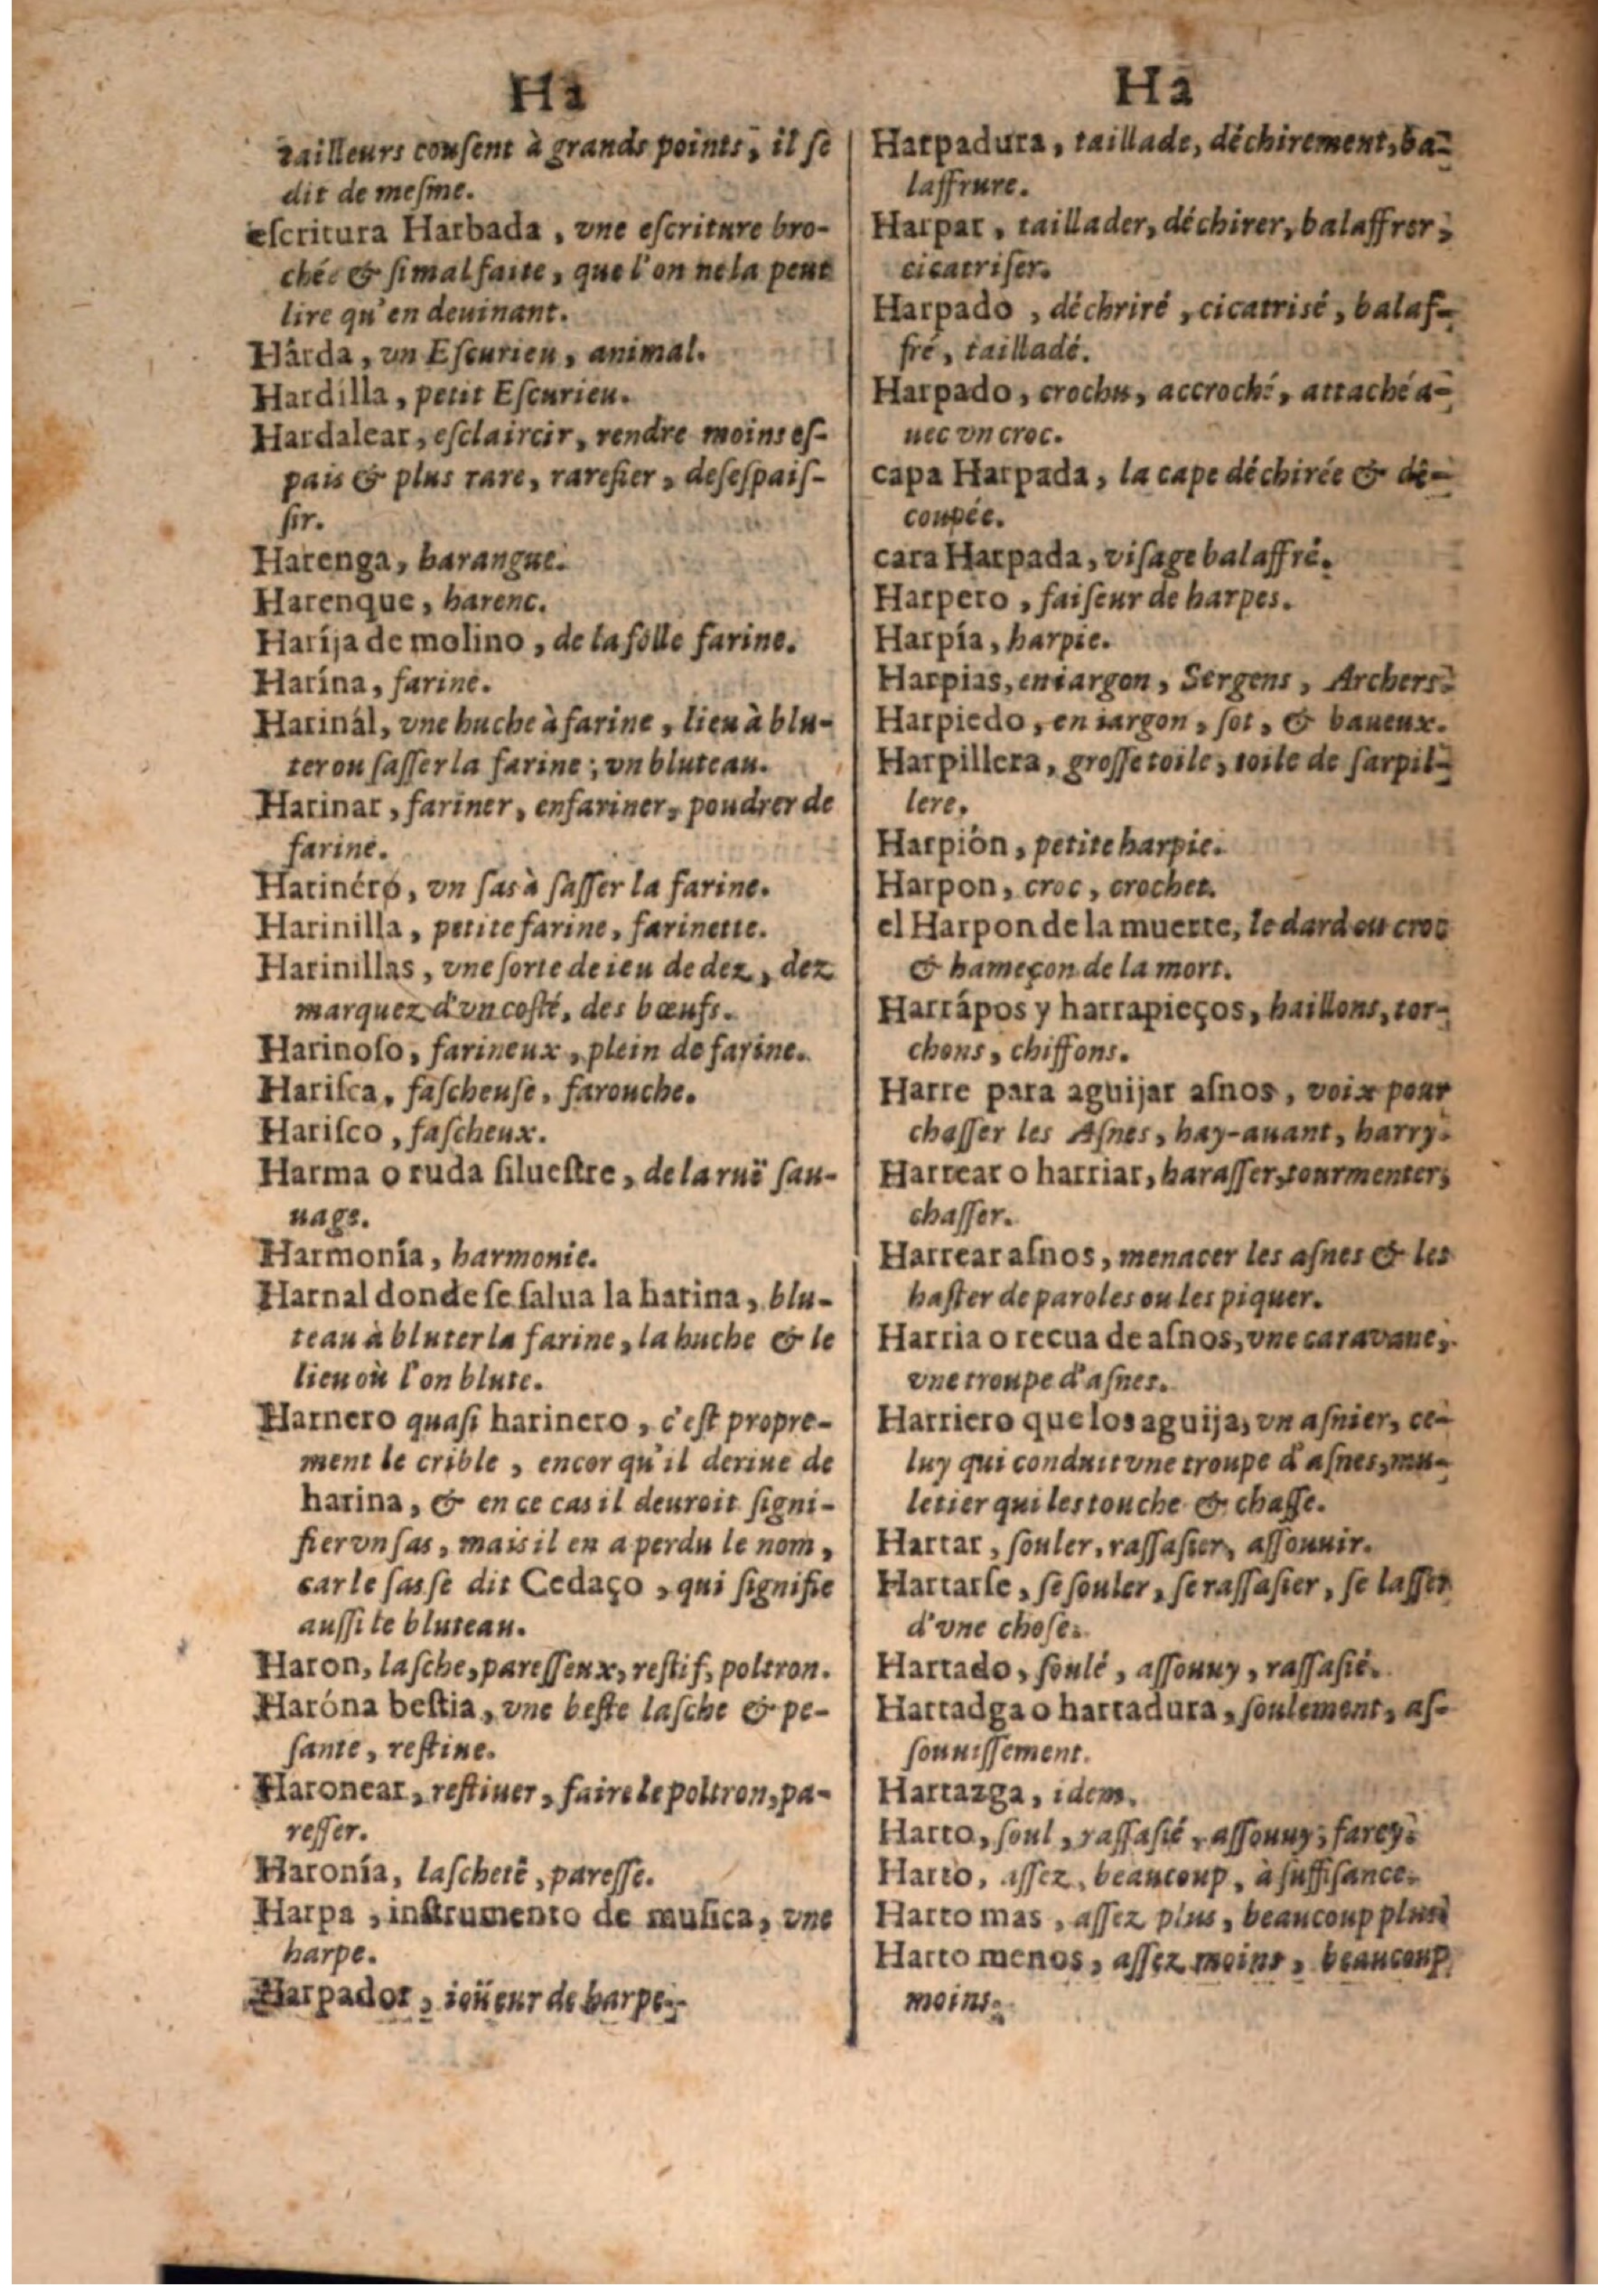 Ha
tailleurs cousent à grands points, il se
dit de meſme.
eſcritura Harbada, vne eſcriture bro-
chée & ſi mal faite, que l'on ne la peut
lire qu'en deuinant.
Hârda, vn Eſcurieu, animal.
Hardilla, petit Eſcurieu.
Hardalear, eſclaircir, rendre moins eſ-
pais & plus rare, rarefier, deſeſpaiſ-
ſir.
Harenga, harangue.
Harenque, harenc.
Haríja de molino, de la folle farine.
Harína, farine.
Harinál, vne huche à farine, lieu à blu-
ter ou ſaſſer la farine, vn bluteau.
Harinar, fariner, enfariner, poudrer de
farine.
Harinéro, vn ſas à ſaſſer la farine.
Harinilla, petite farine, farinette.
Harinillas, vne ſorte de ieu de dez, dez
marquez d'vn coſté, des bœufs.
Harinoſo, farineux, plein de farine.
Hariſca, faſcheuſe, farouche.
Hariſco, faſcheux.
Harma o ruda ſilueſtre, de la ruë ſau-
uage.
Harmonía, harmonie.
Harnal donde ſe ſalua la harina, blu-
teau à bluter la farine, la huche & le
lieu où l'on blute.
Harnero quaſi harinero, c'eſt propre-
ment le crible, encor qu'il deriue de
harina, & en ce cas il deuroit ſigni-
fier vn ſas, mais il en a perdu le nom,
car le ſas ſe dit Cedaço, qui ſignifie
auſſi le bluteau.
Haron, laſche, pareſſeux, reſtif, poltron.
Haróna beſtia, vne beſte laſche & pe-
ſante, reſtiue.
Haronear, reſtiuer, faire le poltron, pa-
reſſer.
Haronía, laſcheté, pareſſe.
Harpa, inſtrumento de muſica, vne
harpe.
Harpador, ioüeur de harpe.
Ha
Harpadura, taillade, déchirement, ba-
laffrure.
Harpar, taillader, déchirer, balaffrer,
cicatriſer.
Harpado, déchriré, cicatrisé, balaf-
fré, tailladé.
Harpado, crochu, accroché, attaché a-
uec vn croc.
capa Harpada, la cape déchirée & dé-
coupée.
cara Harpada, viſage balaffré.
Harpero, faiſeur de harpes.
Harpía, harpie.
Harpias, en iargon, Sergens, Archers.
Harpiedo, en iargon, ſot, & baueux.
Harpillera, groſſe toile, toile de ſarpil-
lere.
Harpión, petite harpie.
Harpon, croc, crochet.
el Harpon de la muerte, le dard ou croc
& hameçon de la mort.
Harrápos y harrapieços, haillons, tor-
chons, chiffons.
Harre para aguijar aſnos, voix pour
chaſſer les Aſnes, hay-auant, harry.
Harrear o harriar, haraſſer, tourmenter,
chaſſer.
Harrear aſnos, menacer les aſnes & les
haſter de paroles ou les piquer.
Harria o recua de aſnos, vne caravane,
vne troupe d'aſnes.
Harriero que los aguija, vn aſnier, ce-
luy qui conduit vne troupe d'aſnes, mu-
letier qui les touche & chaſſe.
Hartar, ſouler, raſſaſier, aſſouuir.
Hartarſe, ſe ſouler, ſe raſſaſier, ſe laſſer
d'vne choſe.
Hartado, ſoulé, aſſouuy, raſſaſié.
Hartadga o hartadura, ſoulement, aſ-
ſouuiſſement.
Hartazga, idem.
Harto, ſoul, raſſaſié, aſſouuy, farcy.
Harto, aſſez, beaucoup, à ſuffiſance.
Harto mas, aſſez plus, beaucoup plus
Harto menos, aſſez moins, beaucoup
moins.